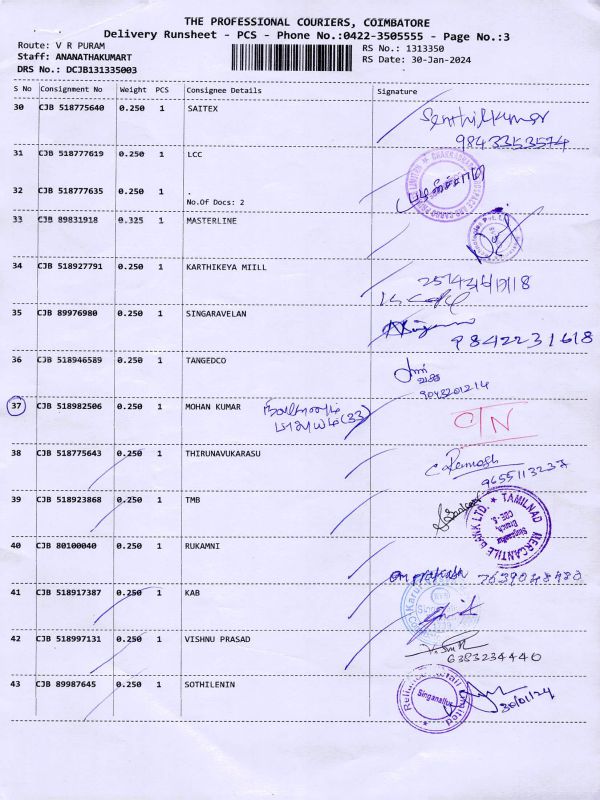 THE PROFESSIONAL COURIERS, COIMBATORE
Delivery Runsheet - PCS - Phone No.:0422-3505555 - Page No.:3
Route: V R PURAM
RS No.: 1313350
Staff: ANANATHAKUMART
RS Date: 30-Jan-2024
DRS No.: DCJB131335003
S No Consignment No Weight PCS Consignee Details Signature
30 CJB 518775640 0.250 1 SAITEX Senthilkumar
9843353574
31 CJB 518777619 0.250 1 LCC
32 CJB 518777635 0.250 1 .
No.Of Docs: 2
33 CJB 89831918 0.325 1 MASTERLINE
34 CJB 518927791 0.250 1 KARTHIKEYA MIILL
35 CJB 89976980 0.250 1 SINGARAVELAN
9842231618
36 CJB 518946589 0.250 1 TANGEDCO
9043201214
37 CJB 518982506 0.250 1 MOHAN KUMAR (33) C/N
38 CJB 518775643 0.250 1 THIRUNAVUKARASU C Ramesh
9655113237
39 CJB 518923868 0.250 1 TMB
TAMILNAD MERCANTILE BANK LTD.
Singanallur
Branch
40 CJB 80100040 0.250 1 RUKAMNI
Om prakash 7639048480
41 CJB 518917387 0.250 1 KAB
42 CJB 518997131 0.250 1 VISHNU PRASAD
6383234440
43 CJB 89987645 0.250 1 SOTHILENIN
Reliance Retail Limited
Singanallur
30/01/24